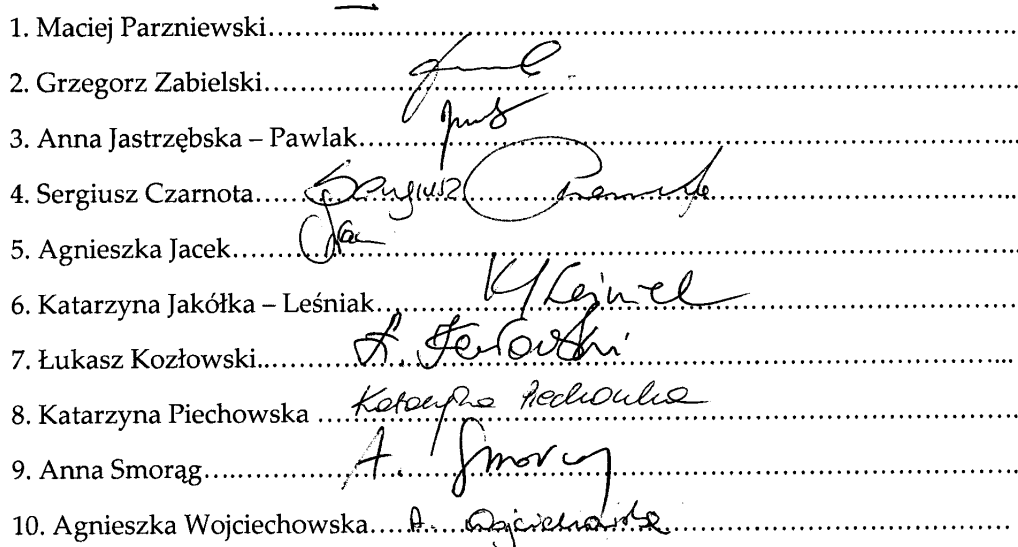 1. Maciej Parzniewski
2. Grzegorz Zabielski
3. Anna Jastrzębska – Pawlak
4. Sergiusz Czarnota Sergiusz Czarnota
5. Agnieszka Jacek
6. Katarzyna Jakółka – Leśniak
7. Łukasz Kozłowski Ł. Kozłowski
8. Katarzyna Piechowska Katarzyna Piechowska
9. Anna Smorąg A. Smorąg
10. Agnieszka Wojciechowska A. Wojciechowska